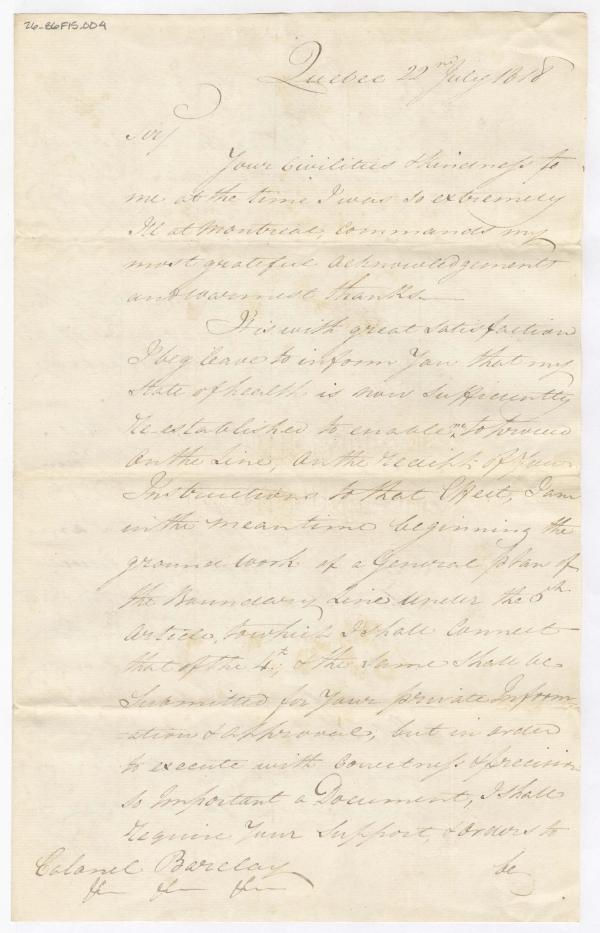 26-86F15.009
Quebec 22nd July 1818
Sir/
Your Civilities & kindness to
me at the time I was so extremely
Ill at Montreal, Commands my
most grateful acknowledgements
and warmest thanks.
It is with great satisfaction
I beg leave to inform You that my
State of health is now sufficiently
re-established to enable me to proceed
on the Line, on the receipt of Your
Instructions to that Effect, I am
in the meantime beginning the
ground work of a General plan of
the Boundary Line under the 5th
Article, to which I shall Connect
that of the 4th, & the same shall be
Submitted for Your private Inform-
-ation & approval, but in order
to execute with Correctness & precision
so Important a Document, I shall
require Your Support, & Orders to
Colonel Barclay be